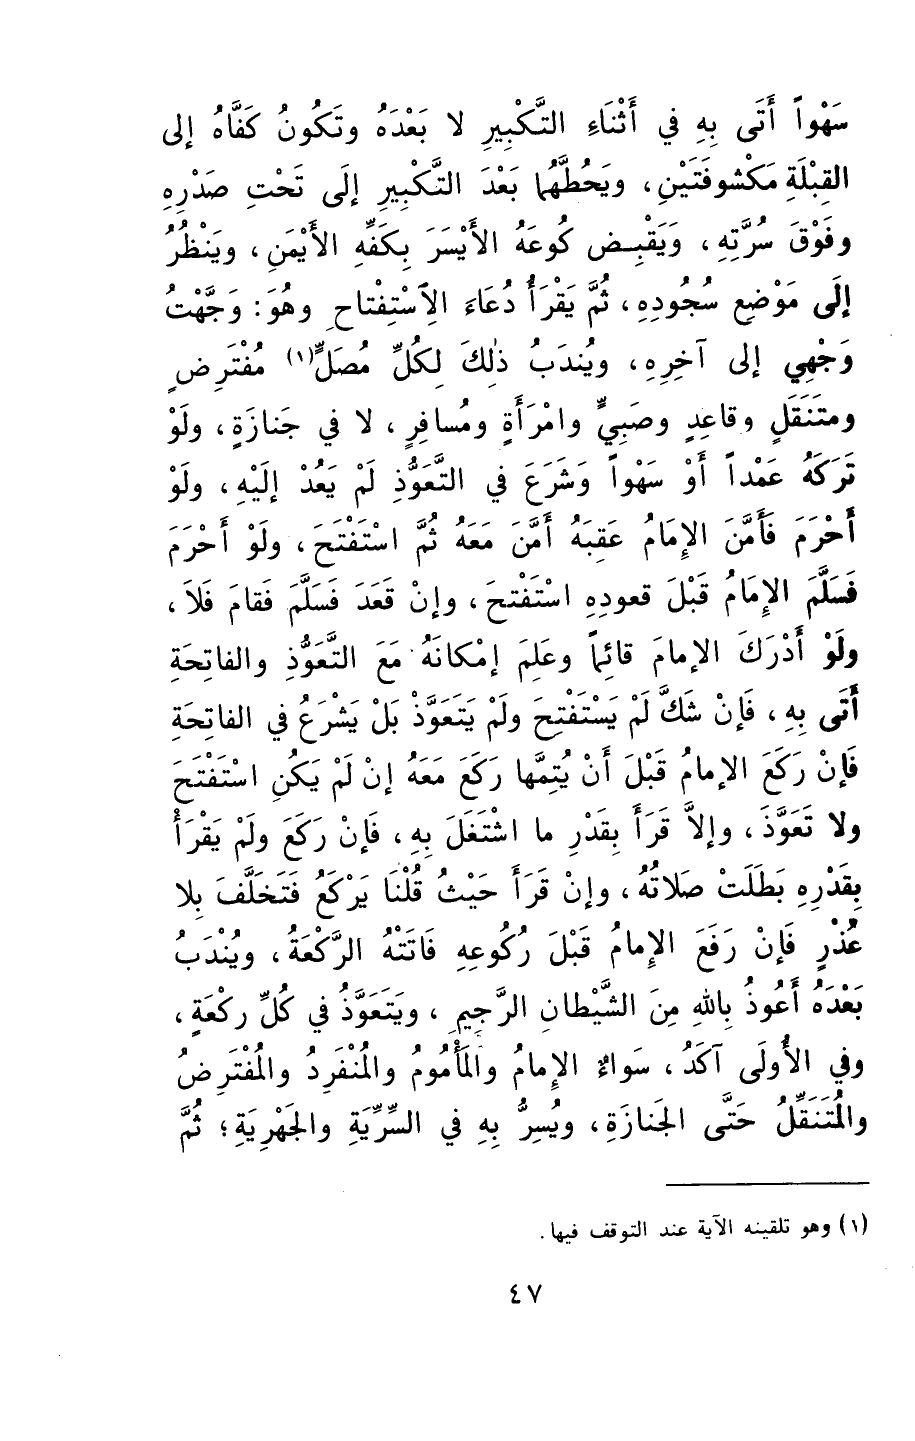 سَهْواً أَتَى بِهِ في أَثْنَاءِ التَّكْبِيرِ لا بَعْدَهُ وتَكُونُ كَفَّاهُ إلى
القِبْلَةِ مَكْشوفَتَيْنِ، ويَحُطَّهُما بَعْدَ التَّكْبِيرِ إلَى تَحْتِ صَدْرِهِ
وفَوْقَ سُرَّتِهِ، وَيَقْبِـضِ كُوعَهُ الأَيْسَرَ بِكَفِّهِ الأَيْمَنِ، ويَنْظُرُ
إلَى مَوْضِعِ سُجُودِهِ، ثُمَّ يَقْرَأُ دُعَاءَ الِاسْتِفْتاحِ وهُوَ: وَجَّهْتُ
وَجْهِي إلى آخِرِهِ، ويُندَبُ ذٰلِكَ لِكُلِّ مُصَلٍّ(١) مُفْتَرِضٍ
ومتَنَفِّلٍ وقاعِدٍ وصَبِيٍّ وامْرَأَةٍ ومُسافِرٍ، لا في جَنازَةٍ، ولَوْ
تَرَكَهُ عَمْداً أَوْ سَهْواً وَشَرَعَ في التَّعَوُّذِ لَمْ يَعُدْ إلَيْهِ، ولَوْ
أَحْرَمَ فَأَمَّنَ الإمَامُ عَقِبَهُ أَمَّنَ مَعَهُ ثُمَّ اسْتَفْتَحَ، ولَوْ أَحْرَمَ
فَسَلَّمَ الإمَامُ قَبْلَ قعودِهِ اسْتَفْتحَ، وإنْ قَعَدَ فَسَلَّمَ فَقامَ فَلاَ،
ولَوْ أَدْرَكَ الإمامَ قائِماً وعَلِمَ إمْكانَهُ مَعَ التَّعَوُّذِ والفاتِحَةِ
أَتَى بِهِ، فَإنْ شَكَّ لَمْ يَسْتَفْتِحَ ولَمْ يَتَعَوَّذْ بَلْ يَشْرَعُ في الفاتِحَةِ
فَإنْ رَكَعَ الإمامُ قَبْلَ أَنْ يُتِمَّها رَكَعَ مَعَهُ إنْ لَمْ يَكُنِ اسْتَفْتَحَ
ولا تَعَوَّذَ، وإلاَّ قَرَأَ بِقَدْرِ ما اشْتَغَلَ بِهِ، فَإنْ رَكَعَ ولَمْ يَقْرَأْ
بِقَدْرِهِ بَطَلَتْ صَلاتُهُ، وإنْ قَرَأَ حَيْثُ قُلْنَا يَرْكَعُ فَتَخَلَّفَ بِلا
عُذْرٍ فَإنْ رَفَعَ الإمامُ قَبْلَ رُكُوعِهِ فَاتَتْهُ الرَّكْعَةُ، ويُنْدَبُ
بَعْدَهُ أَعُوذُ بِاللهِ مِنَ الشَّيْطانِ الرَّجِيمِ، ويَتَعَوَّذُ في كُلِّ ركْعَةٍ،
وفي الأُولَى آكَدُ، سَواءٌ الإمامُ والمَأْمُومُ والمُنْفَرِدُ والمُفْتَرِضُ
والمُتَنَفِّلُ حَتَّى الجَنازَةِ، ويُسِرُّ بِهِ في السِّرِّيَةِ والجَهْرِيَةِ؛ ثُمَّ
(١) وهو تلقينه الآية عند التوقف فيها.
٤٧